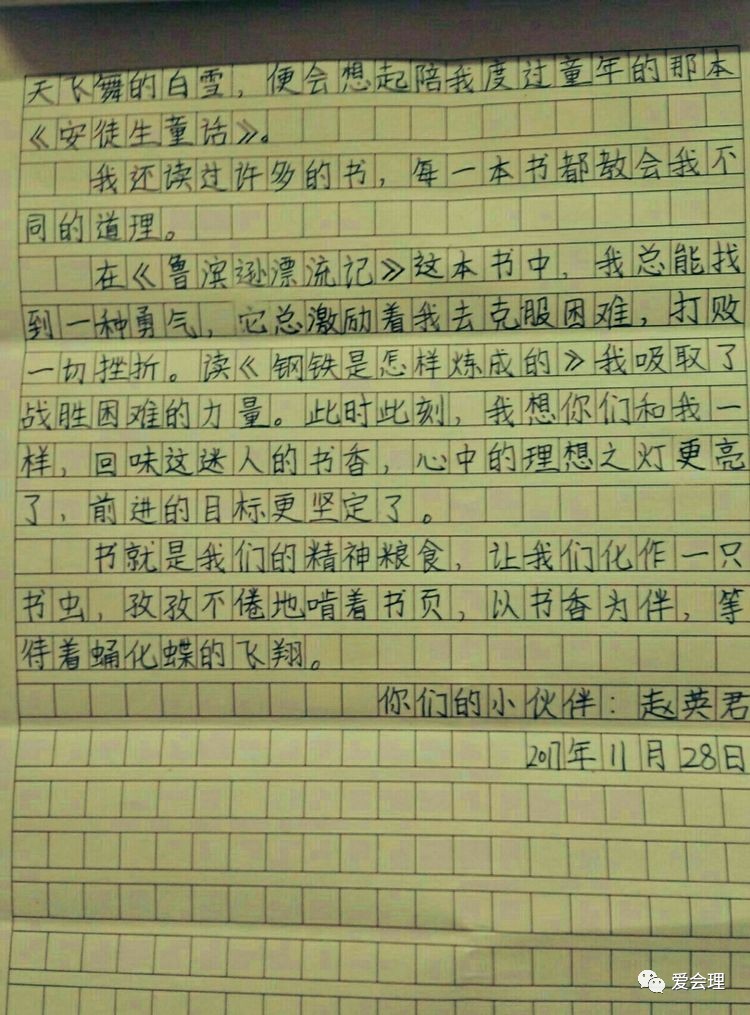 天飞舞的白雪，便会想起陪我度过童年的那本
《安徒生童话》。
我还读过许多的书，每一本书都教会我不
同的道理。
在《鲁滨逊漂流记》这本书中，我总能找
到一种勇气，它总激励着我去克服困难，打败
一切挫折。读《钢铁是怎样炼成的》我吸取了
战胜困难的力量。此时此刻，我想你们和我一
样，回味这迷人的书香，心中的理想之灯更亮
了，前进的目标更坚定了。
书就是我们的精神粮食，让我们化作一只
书虫，孜孜不倦地啃着书页，以书香为伴，等
待着蛹化蝶的飞翔。
你们的小伙伴：赵英君
2017年11月28日
爱会理